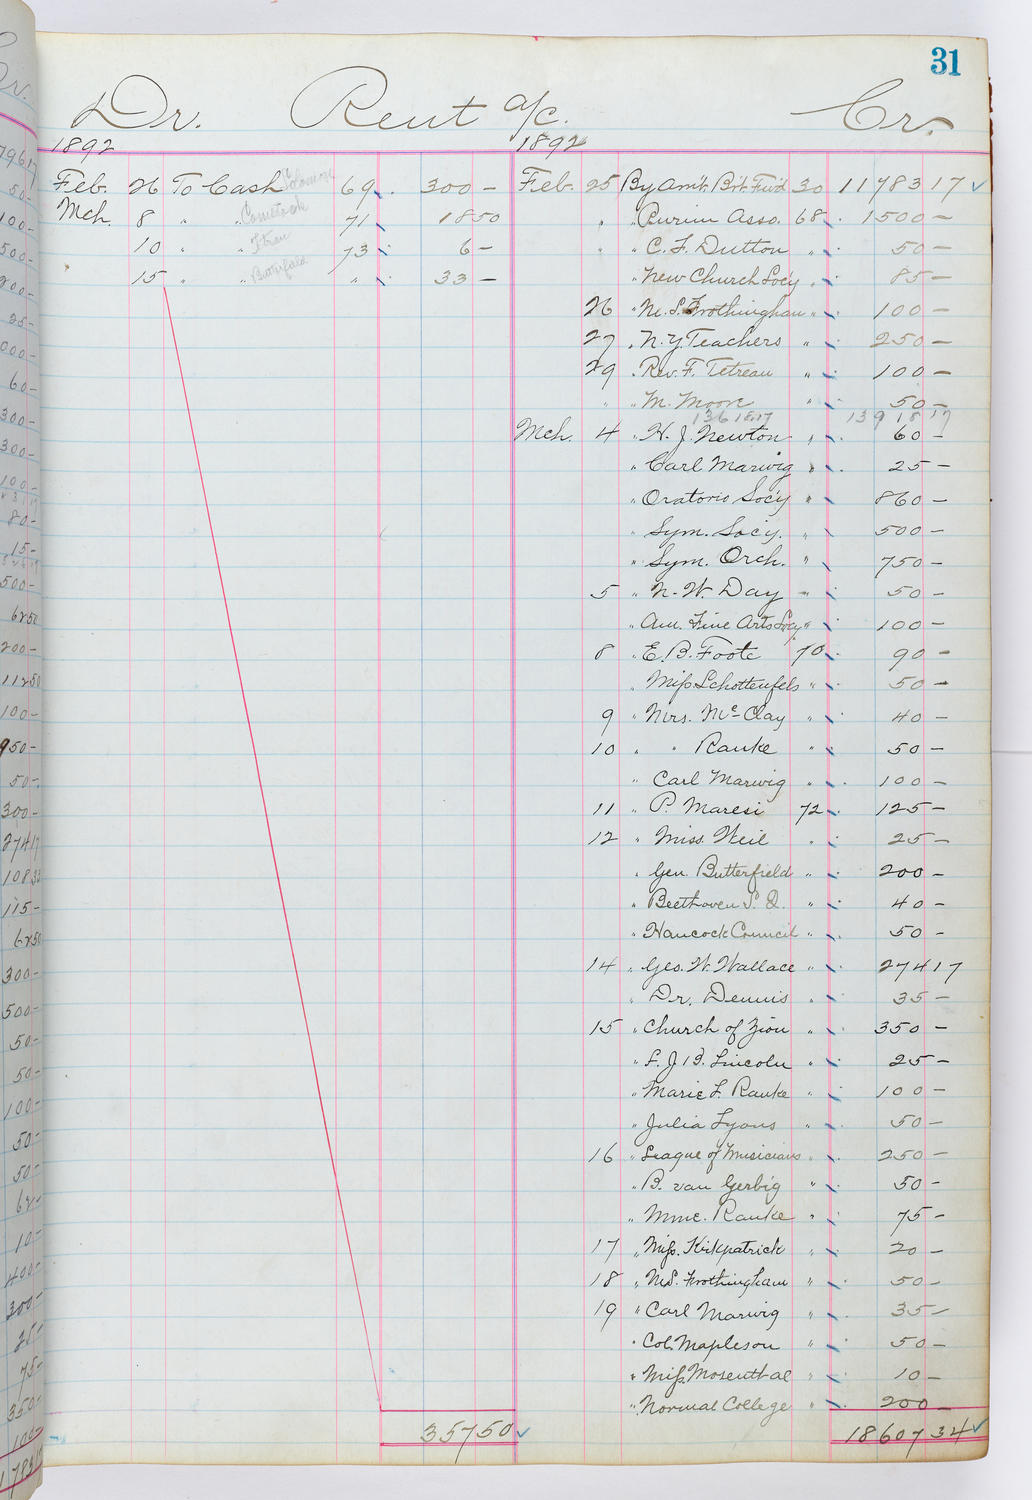 31
Dr. Rent a/c. Cr.
1892 1892
Feb. 26 To Cash 69 300 - Feb. 25 By Amt. Brt. Fwd 30 11783 17
Mch. 8 " " Comstock 71 18 50 " " Purim Asso. 68 1500 -
10 " " 73 6 - " " C. F. Dutton " 50 -
15 " " Butterfield " 33 - " New Church Socy " 85 -
26 " M. S. Frothingham " 100 -
27 " N. Y. Teachers " 250 -
29 " Rev. F. Tetreau " 100 -
" " M. Moore " 50 -
13618.17 13918 17
Mch. 4 " H. J. Newton " 60 -
" Carl Marwig " 25 -
" Oratorio Socy " 860 -
" Sym. Socy. " 500 -
" Sym. Orch. " 750 -
5 " N. W. Day " 50 -
" Am. Fine Arts Socy " 100 -
8 " E. B. Foote 70 90 -
" Miss Schottenfels " 50 -
9 " Mrs. McClay " 40 -
10 " " Ranke " 50 -
" Carl Marwig " 100 -
11 " P. Maresi 72 125 -
12 " Miss Weil " 25 -
" Gen. Butterfield " 200 -
" Beethoven S. Q. " 40 -
" Hancock Council " 50 -
14 " Geo. W. Wallace " 274 17
" Dr. Dennis " 35 -
15 " Church of Zion " 350 -
" S. J. B. Lincoln " 25 -
" Marie L. Ranke " 100 -
" Julia Lyons " 50 -
16 " League of Musicians " 250 -
" B. van Gerbig " 50 -
" Mme. Ranke " 75 -
17 " Miss. Kirkpatrick " 20 -
18 " M.S. Frothingham " 50 -
19 " Carl Marwig " 35 -
" Col. Mapleson " 50 -
" Miss. Mosenthal " 10 -
" Normal College " 200 -
357 50 18607 34